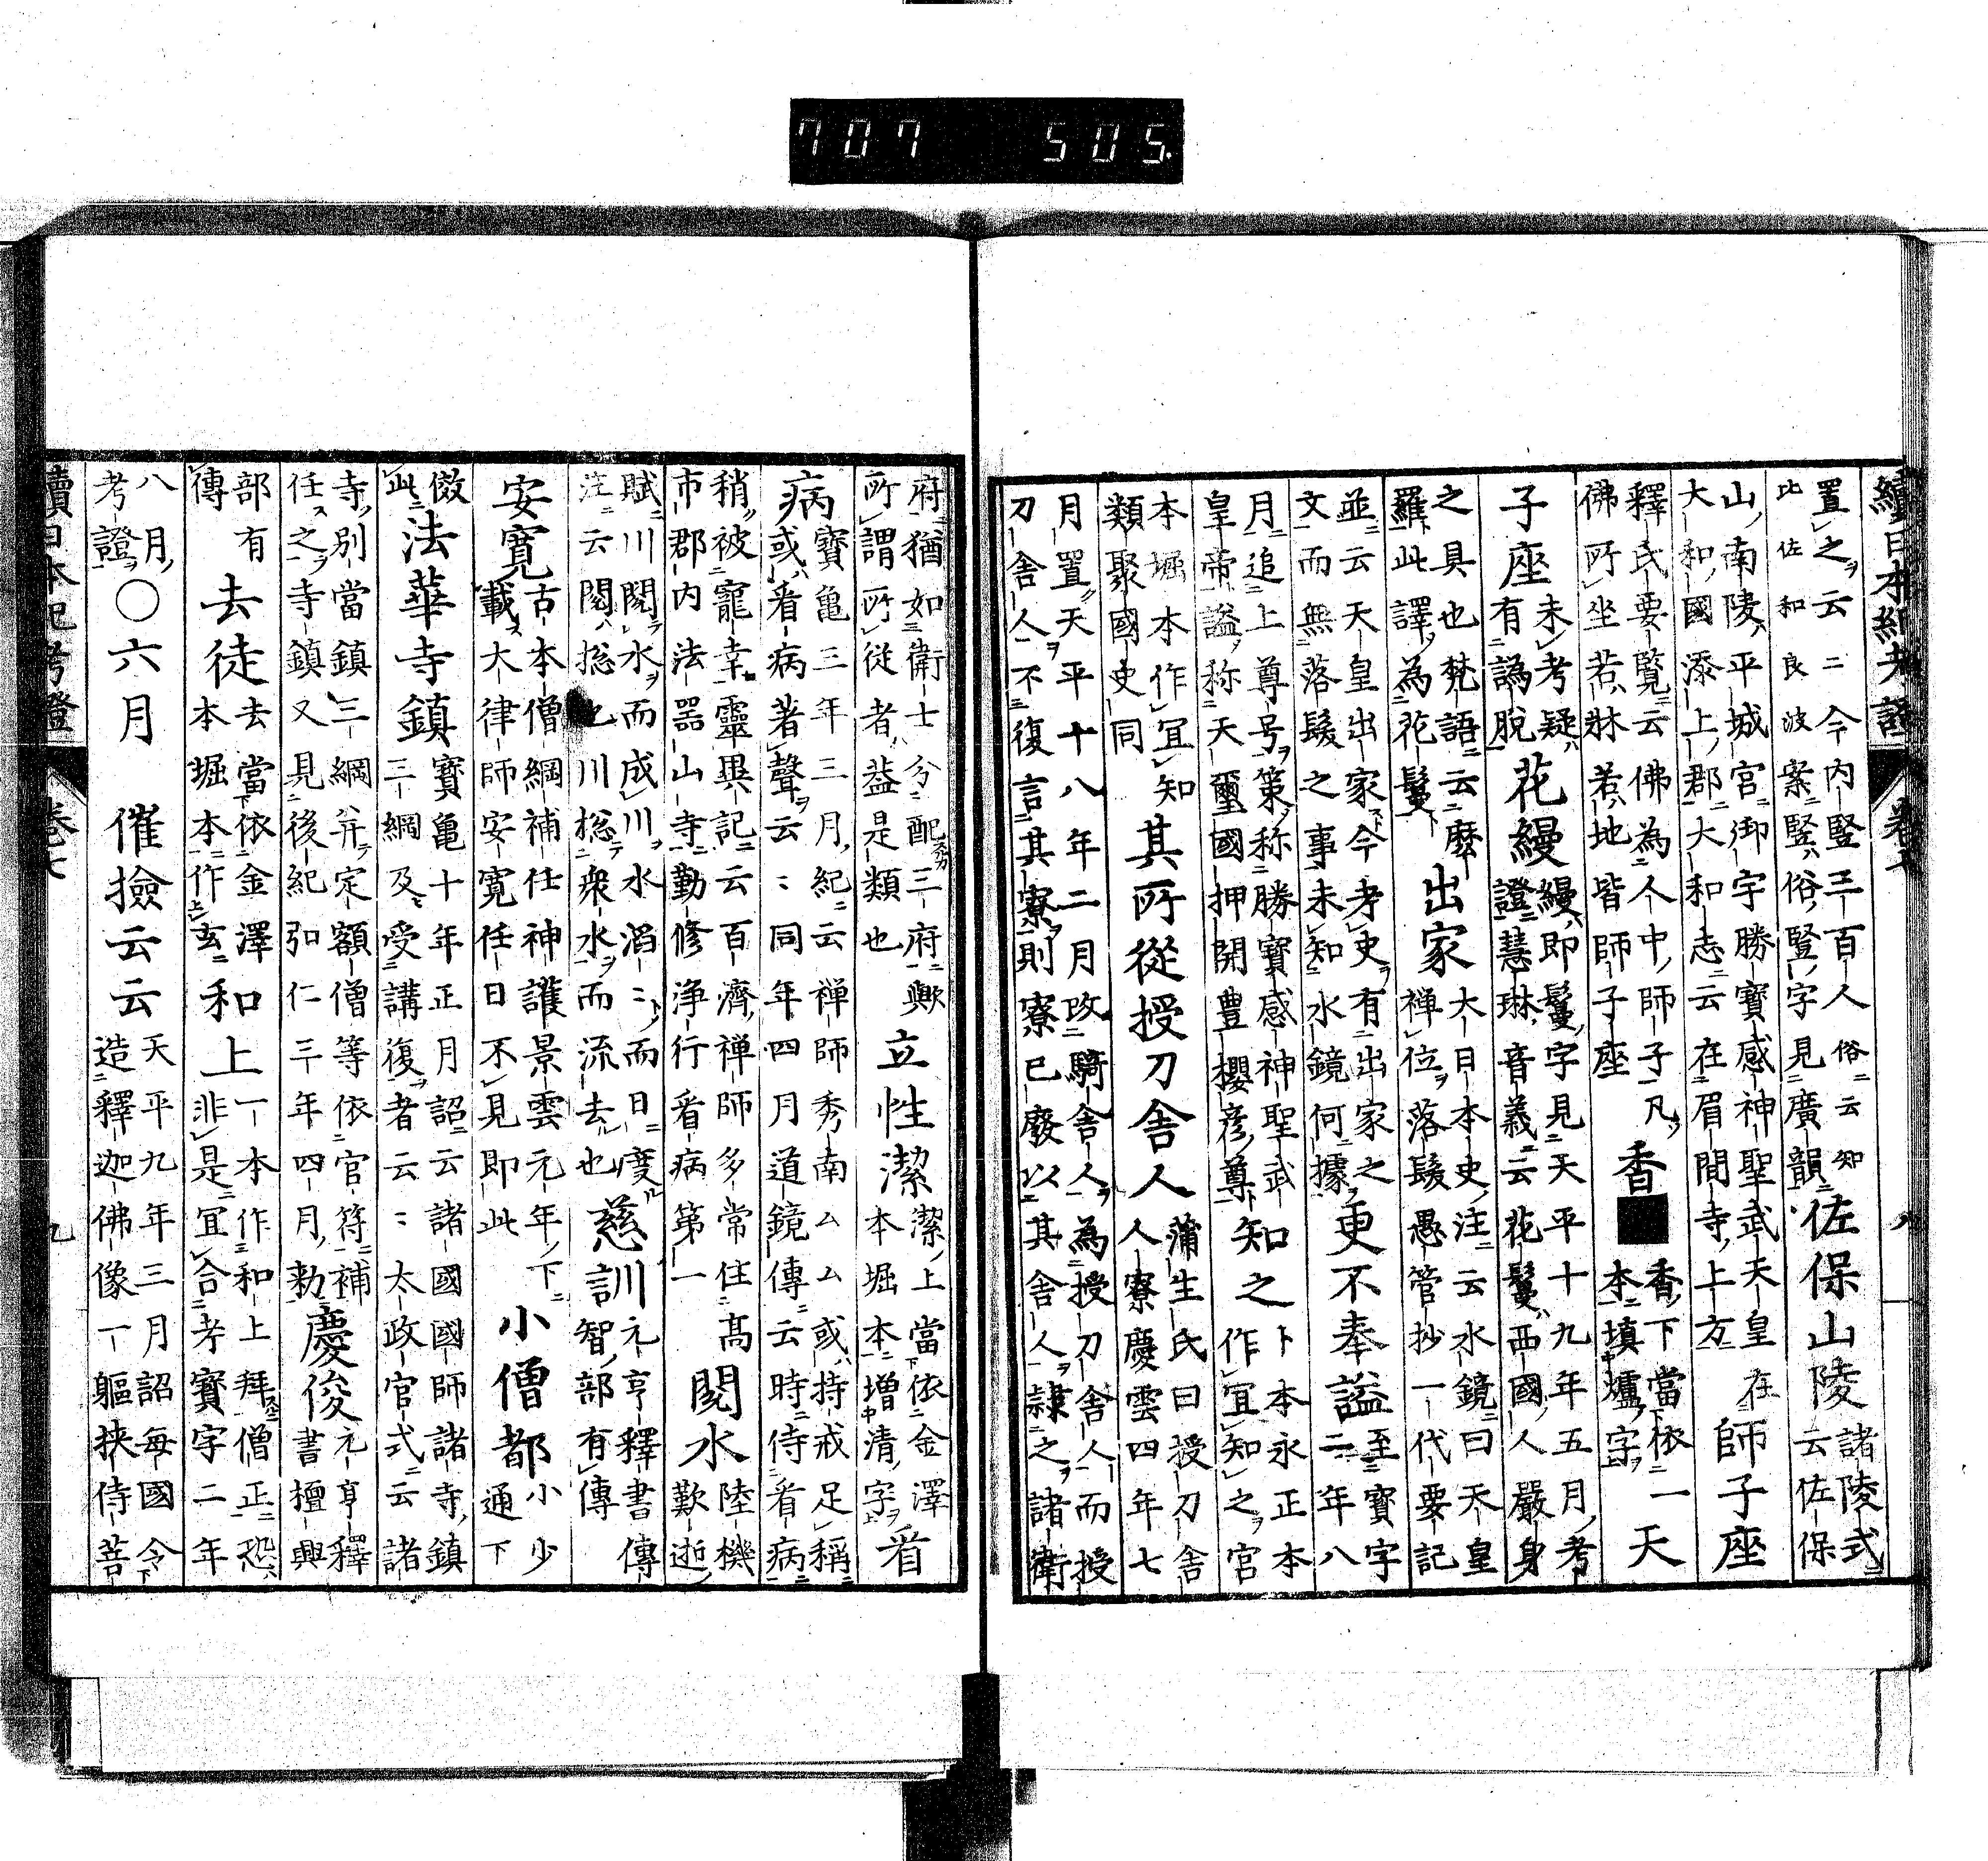 707 505
續日本紀考證 卷七 八
置之云二今内豎三百人俗云知
比佐和良波案豎俗豎字見廣韻
佐保山陵
諸陵式云佐保
山南陵平城宮御宇勝寶感神聖武天皇在
大和國添上郡大和志云在眉間寺上方
師子座
釋氏要覽云佛為人中師子凡
佛所坐若牀若地皆師子座
香■
香下當依一
本填爐字
天
子座
未考疑
有譌脫
花縵
縵即鬘字見天平十九年五月考
證慧琳音義云花鬘西國人嚴身
之具也梵語云麼
羅此譯為花鬘
出家
大日本史注云水鏡曰天皇
禅位落髮愚管抄一代要記
並云天皇出家今考史有出家之
文而無落髮之事未知水鏡何據
更不奉謚
至寶字
二年八
月追上尊号策称勝寶感神聖武
皇帝謚称天璽國押開豊櫻彦尊
知之
卜本永正本
作宜知之官
本堀本作宜知
類聚國史同
其所從授刀舍人
蒲生氏曰授刀舎
人寮慶雲四年七
月置天平十八年二月改騎舎人為授刀舎人而授
刀舎人不復言其寮則寮已廢以其舎人隷之諸衛
府猶如衛士分配三府歟
所謂所從者蓋是類也
立性潔
潔上當依金澤
本堀本増清字
看
病
寶亀三年三月紀云禅師秀南ムム或持戒足稱
或看病著聲云々同年四月道鏡傳云時侍看病
稍被寵幸靈異記云百濟禅師多常住髙
市郡内法器山寺勤修浄行看病第一
閲水
陸機
歎逝
賦川閲水而成川水滔々而日度
注云閲捴也川捴衆水而流去也
慈訓
元亨釋書傳
智部有傳
安寛
古本僧綱補任神護景雲元年下
載大律師安寛任日不見即此
小僧都
小少
通下
倣
此
法華寺鎮
寶亀十年正月詔云諸國國師諸寺鎮
三綱及受講復者云々太政官式云諸
寺別當鎮三綱并定額僧等依官符補
任之寺鎮又見後紀弘仁三年四月勅
慶俊
元亨釋
書檀興
部有
傳
去徒
去當依金澤
本堀本作玄
和上
一本作和上拜僧正恐
非是宜合考寶字二年
八月
考證
○六月
催撿云云
天平九年三月詔毎國令
造釋迦佛像一軀挾侍菩
續日本紀考證 卷七 九